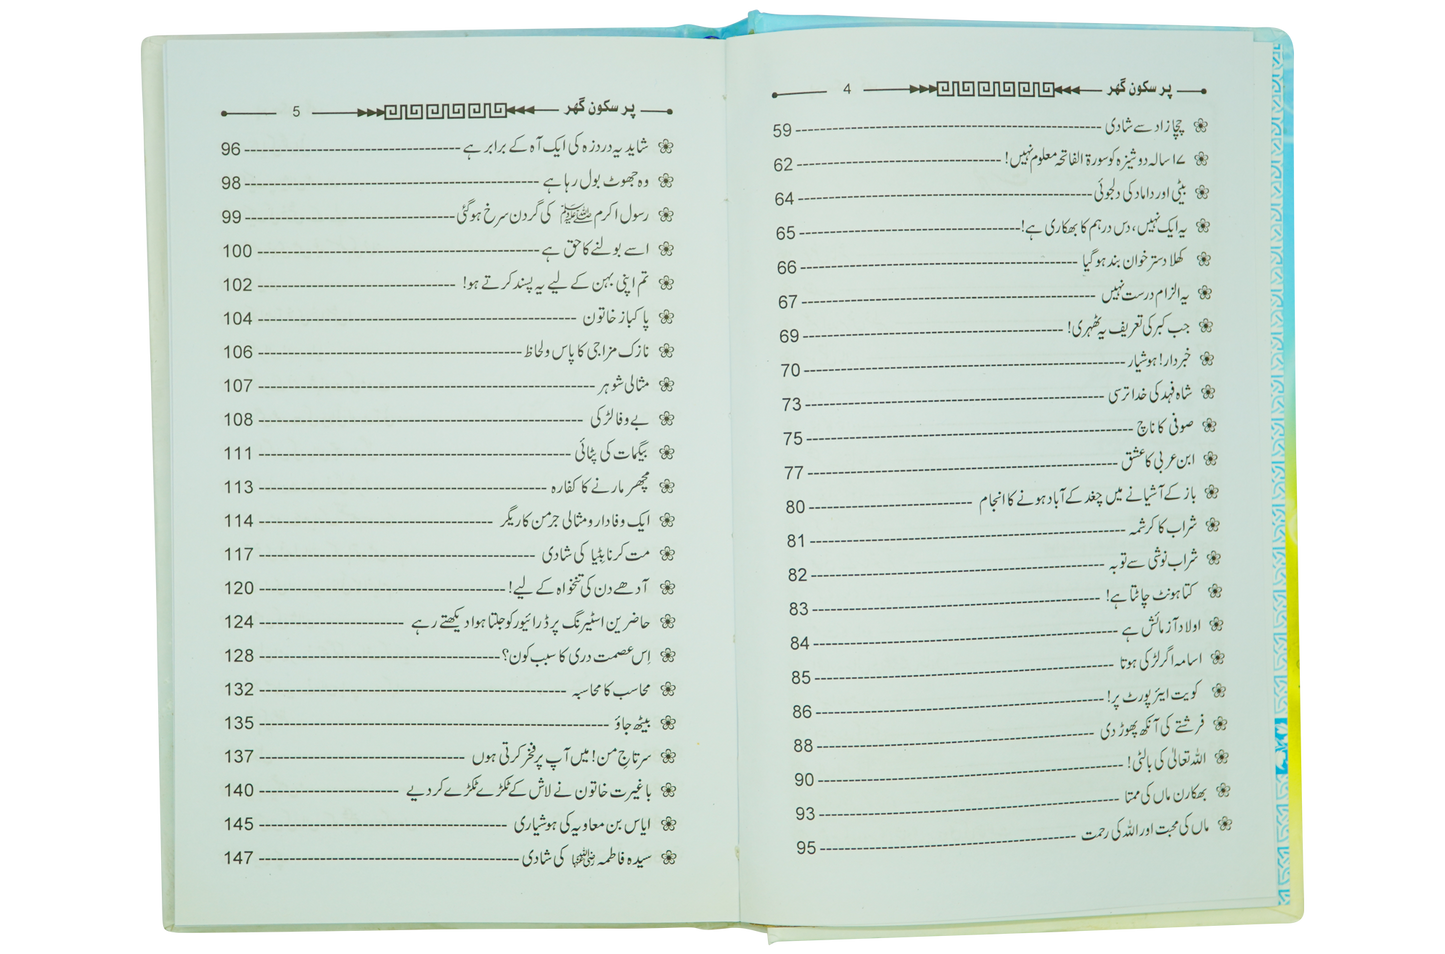 پر سکون گھر 4
چچا زاد سے شادی 59
۱۷ سالہ دوشیزہ کو سورۃ الفاتحہ معلوم نہیں! 62
بیٹی اور داماد کی دلجوئی 64
یہ ایک نہیں، دس درہم کا بھکاری ہے! 65
کھلا دستر خوان بند ہو گیا 66
یہ الزام درست نہیں 67
جب کبر کی تعریف یہ ٹھہری! 69
خبردار! ہوشیار 70
شاہ فہد کی خدا ترسی 73
صوفی کا ناچ 75
ابن عربی کا عشق 77
باز کے آشیانے میں چغد کے آباد ہونے کا انجام 80
شراب کا کرشمہ 81
شراب نوشی سے توبہ 82
کتا ہونٹ چاٹتا ہے! 83
اولاد آزمائش ہے 84
اسامہ اگر لڑکی ہوتا 85
کویت ایئر پورٹ پر! 86
فرشتے کی آنکھ پھوڑ دی 88
اللہ تعالیٰ کی بالٹی! 90
بھکارن ماں کی ممتا 93
ماں کی محبت اور اللہ کی رحمت 95
پر سکون گھر 5
شاید یہ درد زہ کی ایک آہ کے برابر ہے 96
وہ جھوٹ بول رہا ہے 98
رسول اکرم ﷺ کی گردن سرخ ہو گئی 99
اسے بولنے کا حق ہے 100
تم اپنی بہن کے لیے یہ پسند کرتے ہو! 102
پاکباز خاتون 104
نازک مزاجی کا پاس و لحاظ 106
مثالی شوہر 107
بے وفا لڑکی 108
بیگمات کی پٹائی 111
مچھر مارنے کا کفارہ 113
ایک وفادار و مثالی جرمن کاریگر 114
مت کرنا بِٹیا کی شادی 117
آدھے دن کی تنخواہ کے لیے! 120
حاضرین اسٹیرنگ پر ڈرائیور کو جلتا ہوا دیکھتے رہے 124
اِس عصمت دری کا سبب کون؟ 128
محاسب کا محاسبہ 132
بیٹھ جاؤ 135
سرتاجِ من! میں آپ پر فخر کرتی ہوں 137
باغیرت خاتون نے لاش کے ٹکڑے ٹکڑے کر دیے 140
ایاس بن معاویہ کی ہوشیاری 145
سیدہ فاطمہ رضی اللہ عنہا کی شادی 147